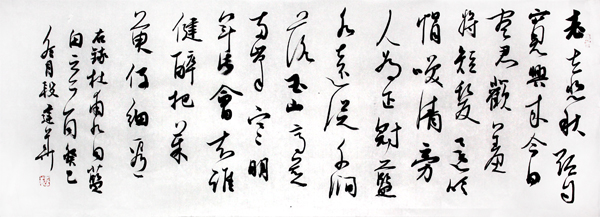 老去悲秋強自
寬興來今日
盡君歡羞
將短髮還吹
帽咲倩旁
人為正冠藍
水遠從千澗
落玉山高並
兩峰寒明
年此會知誰
健醉把茱
萸仔細看
右錄杜甫九日藍
田 癸巳
八月段建